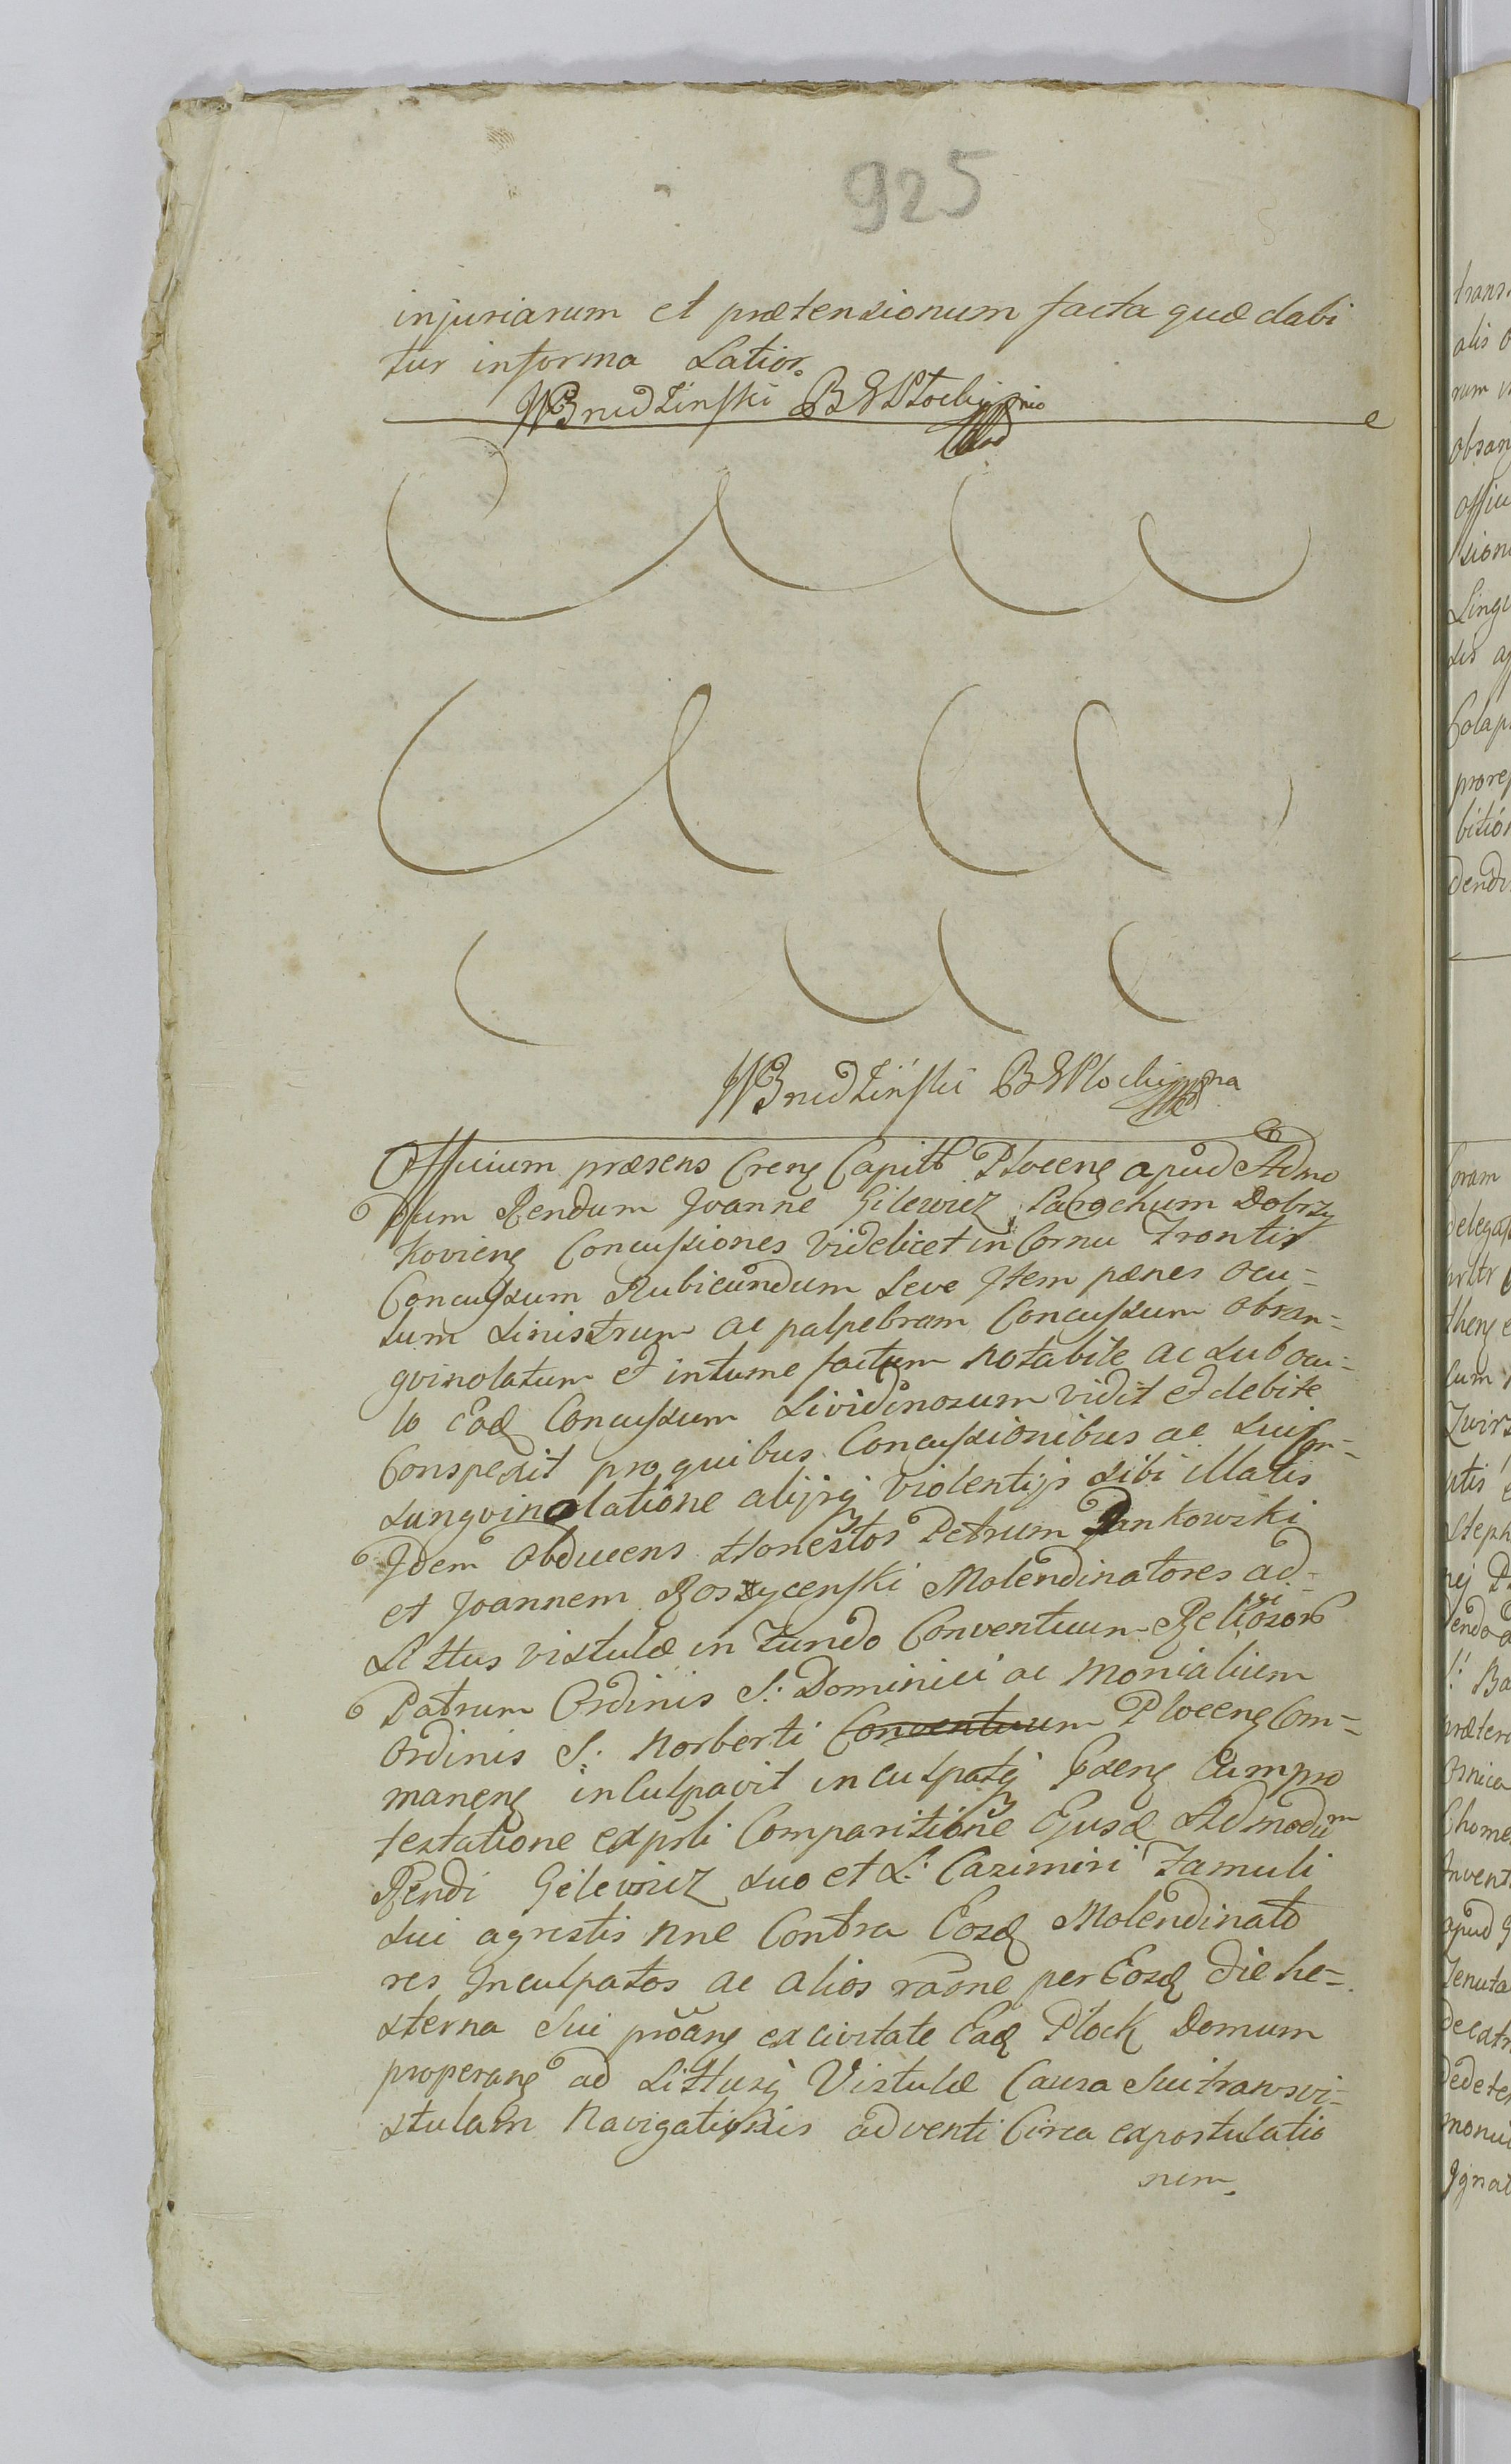 925
injuriarum et prætensionum facta quæ dabi
tur in forma Latior.
Officium præsens Crenẹ Capitt Plocenẹ apud Admo
dum Rendum Joanne Gilewicz Parochum Dobrzy
kovienẹ Concussiones videlicet in Cornu Frontis
Concussum Rubicundum Leve Item pænes ocu=
lum sinistrum ac palpebram Concussum obsan=
gvinolatum et intume factum notabile ac sub ocu=
lo Eod Concussum Lividinosum vidit et debite
Conspexit pro quibus Concussionibus ac sui
sangvinolatione alijsq violentijs sibi illatis
Idem Obducens Honestos Petrum Jankowski
et Joannem Roszycenski Molendinatores ad
Littus vistulæ in Fundo Conventuum Reliosor
Patrum Ordinis S: Dominici ac Monialium
Ordinis S: Norberti Conventuum Plocenẹ Com=
manenẹ inculpavit inculpatq Exenẹ Cum pro
testatione expsti Comparitione Ejusd Admodum
Rendi Gilewicz suo et L: Cazimiri Famuli
sui agrestis nne Contra Eosd Molendinato
res Inculpatos ac alios raone per Eosd die he=
sterna sui proang ex civitate Ead Płock Domum
properanẹ ad Littusq Vistulæ Causa sui transvi=
stulam Navigationis adventi Circa expostulatio
nem.